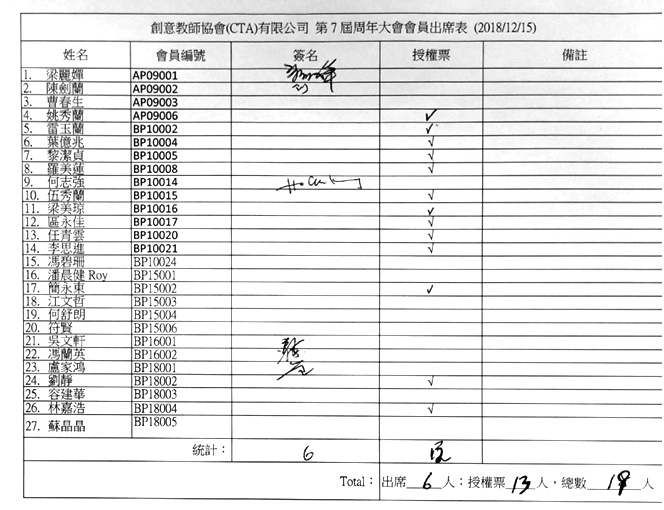 創意教師協會(CTA)有限公司 第 7 屆周年大會會員出席表 (2018/12/15)
姓名 會員編號 簽名 授權票 備註
1. 梁麗嬋 AP09001
2. 陳劍蘭 AP09002
3. 曹春生 AP09003
4. 姚秀蘭 AP09006 ✓
5. 雷玉蘭 BP10002 ✓
6. 葉億兆 BP10004 √
7. 黎潔貞 BP10005 √
8. 羅美蓮 BP10008 √
9. 何志強 BP10014
10. 伍秀蘭 BP10015 √
11. 梁美琼 BP10016 ✓
12. 區永佳 BP10017 √
13. 任青雲 BP10020 √
14. 李思進 BP10021 √
15. 馮碧珊 BP10024
16. 潘晨健 Roy BP15001
17. 簡永東 BP15002 ✓
18. 江文哲 BP15003
19. 何舒朗 BP15004
20. 符賢 BP15006
21. 吳文軒 BP16001
22. 馮蘭英 BP16002
23. 盧家鴻 BP18001
24. 劉靜 BP18002 √
25. 容建華 BP18003
26. 林嘉浩 BP18004 √
27. 蘇晶晶 BP18005
統計： 6
Total： 出席 6 人；授權票 13 人，總數 人